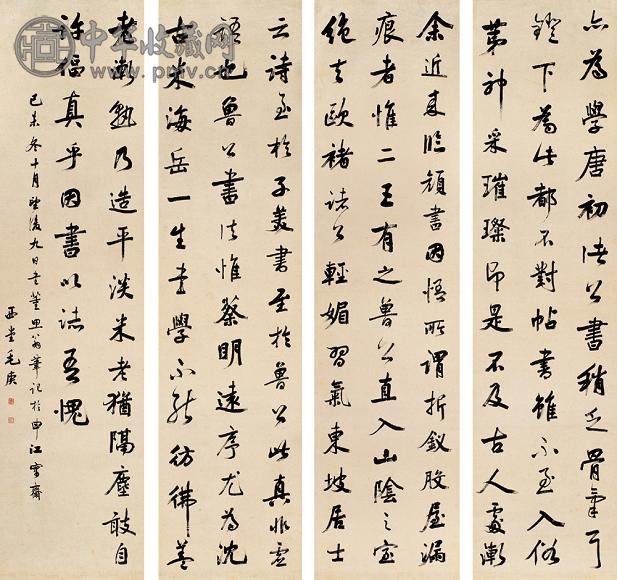 亦為學唐初諸公書稍乏骨氣耳
鐙下為此都不對帖書雖不至入俗
第神采璀璨即是不及古人處漸
余近來臨顏書因悟所謂折釵股屋漏
痕者惟二王有之魯公直入山陰之室
絕去歐褚諸公輕媚習氣東坡居士
云詩至於子美書至於魯公此真非虛
語也魯公書法惟蔡明遠序尤為沈
古米海岳一生學不能彷彿蓋
老漸熟乃造平淡米老猶隔塵敢自
許逼真乎因書以誌吾愧
己未冬十月望後九日董思翁筆記於申江寓齋
西堂毛庚
中华收藏网